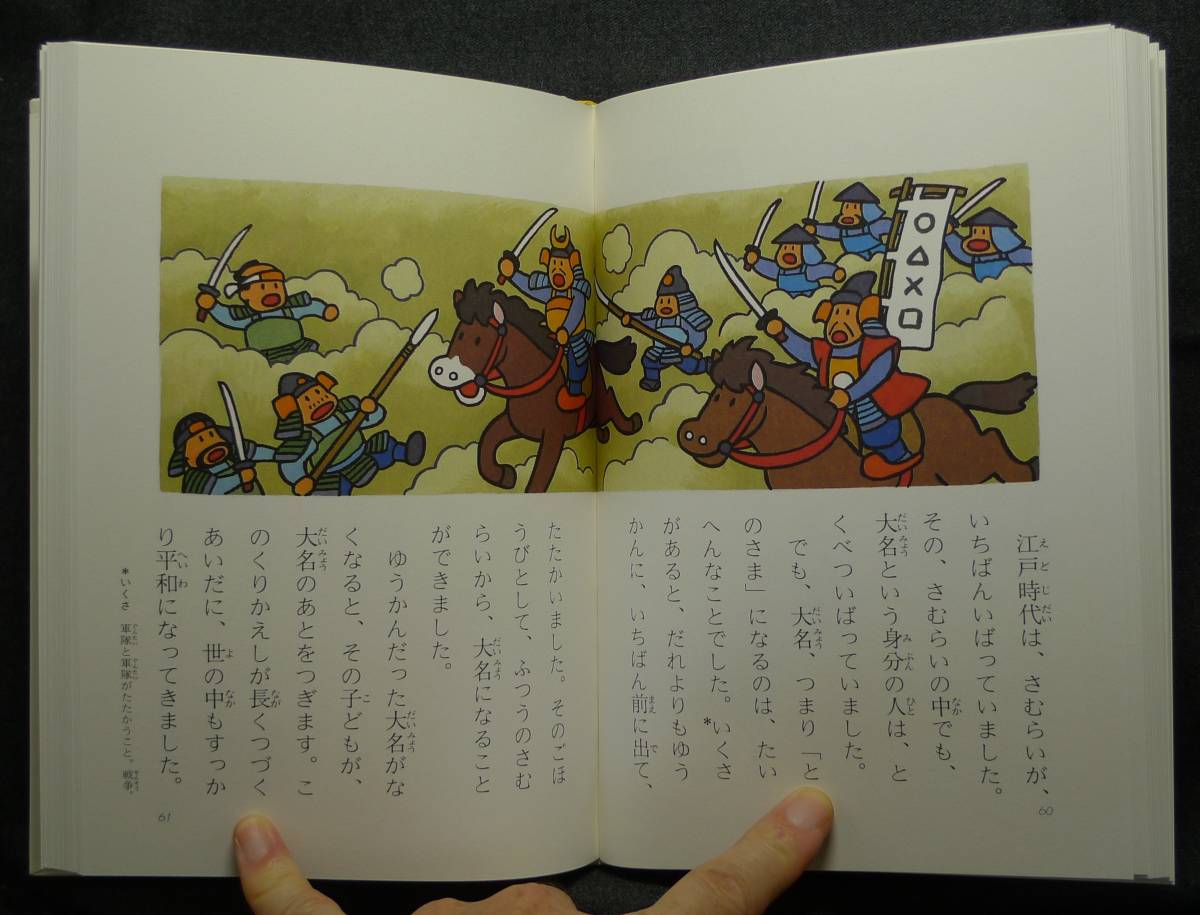 江戸時代は、さむらいが、
いちばんいばっていました。
その、さむらいの中でも、
大名という身分の人は、と
くべついばっていました。
でも、大名、つまり「と
のさま」になるのは、たい
へんなことでした。*いくさ
があると、だれよりもゆう
かんに、いちばん前に出て、
60
たたかいました。そのごほ
うびとして、ふつうのさむ
らいから、大名になること
ができました。
ゆうかんだった大名がな
くなると、その子どもが、
大名のあとをつぎます。こ
のくりかえしが長くつづく
あいだに、世の中もすっか
り平和になってきました。
*いくさ 軍隊と軍隊がたたかうこと。戦争。
61